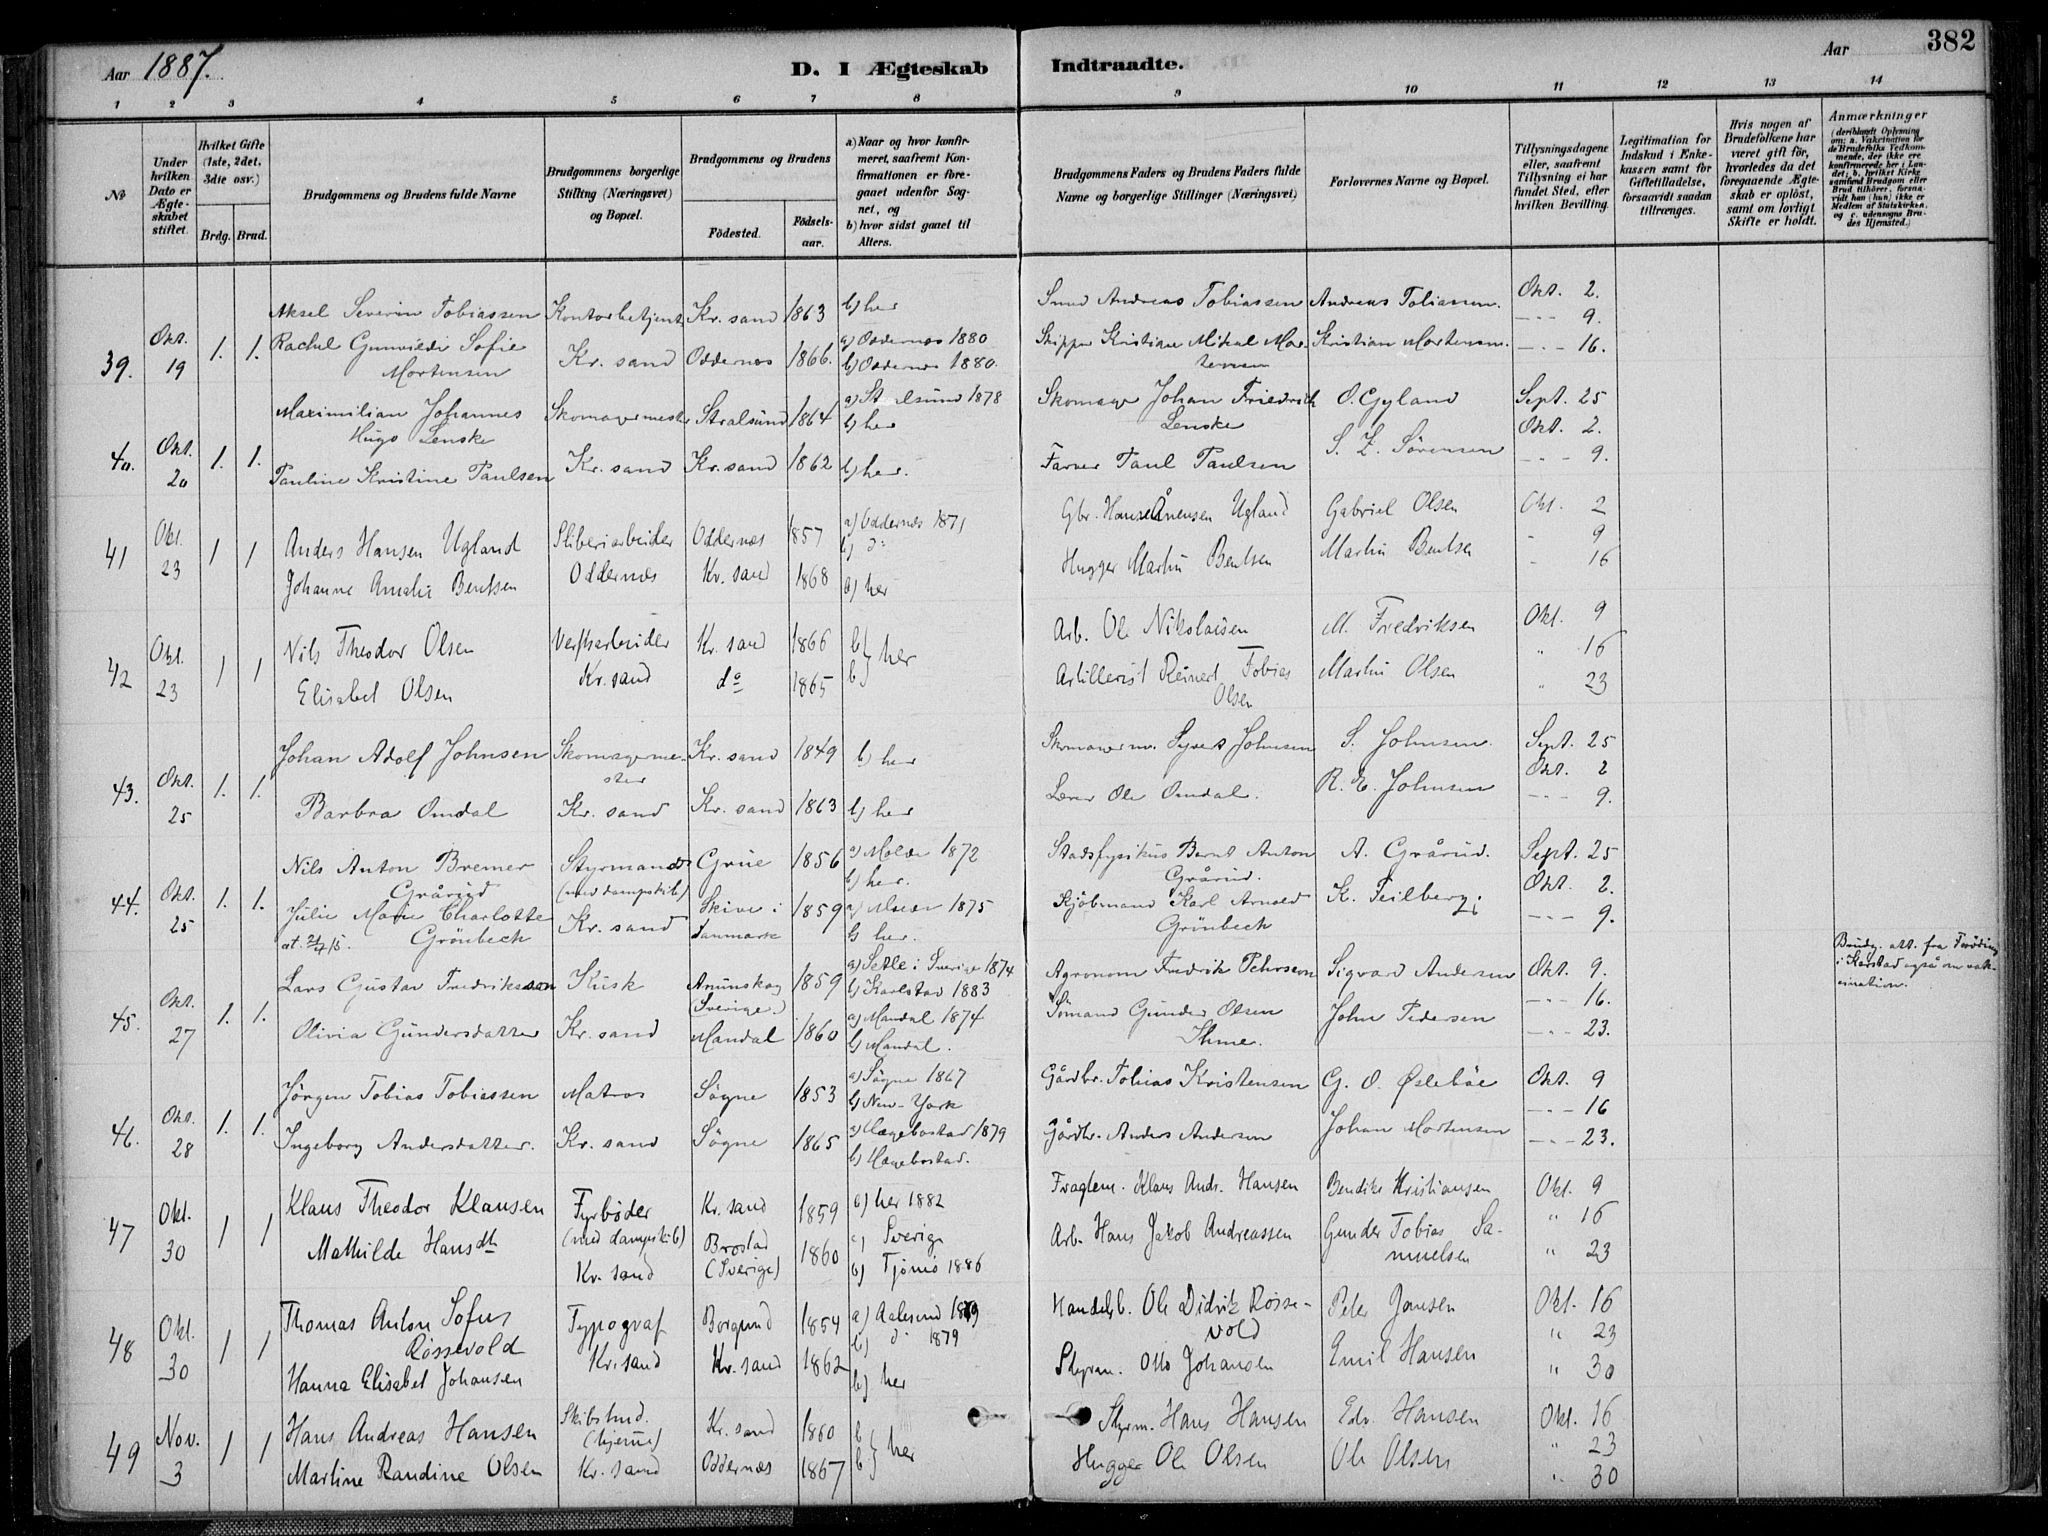 Aar 1887.
D. I Ægteskab Indtraadte.
Aar 382
1 2 3 4 5 6 7 8 9 10 11 12 13 14
№
Under hvilken Dato er Ægteskabet stiftet.
Hvilket Gifte (1ste, 2det, 3die osv.)
Brdg. Brud.
Brudgommens og Brudens fulde Navne
Brudgommens borgerlige Stilling (Næringsvei) og Bopæl.
Brudgommens og Brudens
Födested. Födselsaar.
a) Naar og hvor konfirmeret, saafremt Konfirmationen er foregaaet udenfor Sognet, og
b) hvor sidst gaaet til Alters.
Brudgommens Faders og Brudens Faders fulde Navne og borgerlige Stillinger (Næringsvei)
Forlovernes Navne og Bopæl.
Tillysningsdagene eller, saafremt Tillysning ei har fundet Sted, efter hvilken Bevilling.
Legitimation for Indskud i Enkekassen samt for Giftetilladelse, forsaavidt saadan tiltrænges.
Hvis nogen af Brudefolkene har været gift för, hvorledes da det foregaaende Ægteskab er oplöst, samt om lovligt Skifte er holdt.
Anmærkninger
(deriblandt Oplysning om: a. Vakcination for de Brudefolks Vedkommende, der ikke ere konfirmerede her i Landet; b. hvilket Kirkesamfund Brudgom eller Brud tilhörer, forsaavidt han (hun) ikke er Medlem af Statskirken, og c. udensogns Brudes Hjemsted.)
39. Okt. 19 1. 1. Aksel Severin Tobiassen Kontorbetjent Kr. sand 1863 b) her Smed Andreas Tobiassen Andreas Tobiassen. Okt. 2.
Rachel Gunvilde Sofie Mortensen Kr. sand Oddernæs 1866. a) Oddernæs 1880 b) Oddernæs 1880. Skipper Kristian Mikal Mortensen Kristian Mortensen. 9. 16.
40. Okt. 20 1. 1. Maximilian Johannes Hugo Lenske Skomagermester Stralsund 1864 a) Stralsund 1878 b) her Skomager Johan Friedrich Lenske O. Gyland Sept. 25 Okt. 2.
Pauline Kristine Paulsen Kr. sand Kr. sand 1862 b) her. Farver Paul Paulsen S. Z. Sörensen 9.
41 Okt. 23 1 1 Anders Hansen Ugland Sliberiarbeider Oddernæs 1857 a) Oddernæs 1871 b) do Gbr. Hans Ånensen Ugland Gabriel Olsen Okt. 2
Johanne Amalie Bentsen Oddernæs Kr. sand 1868 a) her Hugger Martin Bentsen Martin Bentsen 9 16
42 Okt. 23 1 1 Nils Theodor Olsen Verftsarbeider Kr. sand 1866 b) her Arb. Ole Nikolaisen M. Fredriksen Okt. 9
Elisabet Olsen Kr. sand do 1865 b) Artillerist Reinert Tobias Olsen Martin Olsen " 16 " 23
43. Okt. 25 1. 1. Johan Adolf Johnsen Skomagermester Kr. sand 1849 b) her Skomagerm. Syvert Johnsen S. Johnsen. Sept. 25
Barbra Omdal Kr. sand Kr. sand 1863 b) her Lærer Ole Omdal. R. E. Johnsen Okt. 2 9.
44. Okt. 25 1. 1. Nils Anton Bremer Grårud Styrmand (med dampskib) Grue 1856 a) Molde 1872 b) her. Stadsfysikus Bernt Anton Grårud. A. Grårud. Sept. 25 Okt. 2.
Julie Marie Charlotte Grönbech Kr. sand Skive i Danmark 1859 1875 b) her. Kjöbmand Karl Arnold Grönbech K. Teilberg; 9.
45. Okt. 27 1. 1. Lars Gustav Fredriksson Kusk Arnunskog (Sverige.) 1859 a) Setle i Sverige 1874 b) Karlstad 1883 Agronom Fredrik Pehrsson Sigvard Andersen Okt. 9. 16. Brudg. att. fra Fröding i Karstad også om vakcination.
Olivia Gundersdatter Kr. sand Mandal 1860 a) Mandal 1874 b) Mandal. Sömand Gunder Olsen Ihme. John Pedersen 23.
46. Okt. 28 1. 1. Jörgen Tobias Tobiassen Matros Sögne 1853 a) Sögne 1867 b) New-York Gårdbr. Tobias Kristensen G. O. Öslebö Okt. 9 16
Ingeborg Andersdatter. Kr. sand Sögne 1865 a) Hægebostad 1879 b) Hægebostad. Gårdbr. Anders Andersen Johan Mortensen 23.
47 Okt. 30 1 1 Klaus Theodor Klausen Fyrbøder (med dampskib) Kr. sand 1859 a) her 1882 Fragtem. Klaus Andr. Hansen Bendike Kristiansen Okt. 9
Mathilde Hansdtt Kr. sand Brostad (Sverige) 1860 a) Sverig b) Tjømø 1886 Arb. Hans Jakob Andreassen Gunder Tobias Samuelsen " 16 " 23
48 Okt. 30 1 1 Thomas Anton Sofus Røssevold Typograf Borgund 1854 a) Aalesund b) do 1879 Handelsb. Ole Didrik Røssevold Peter Jansen Okt. 16 " 23
Hanna Elisabet Johansen Kr. sand Kr. sand 1862 b) her Styrm. Otto Johansen Emil Hansen " 30
49 Nov. 3 1 1 Hans Andreas Hansen Skibstmd. (hjemme) Kr. sand 1860 b) her Styrm. Hans Hansen Edv. Hansen Okt. 16
Martine Randine Olsen Kr. sand Oddernæs 1867 b) Hugger Ole Olsen Ole Olsen " 23 " 30